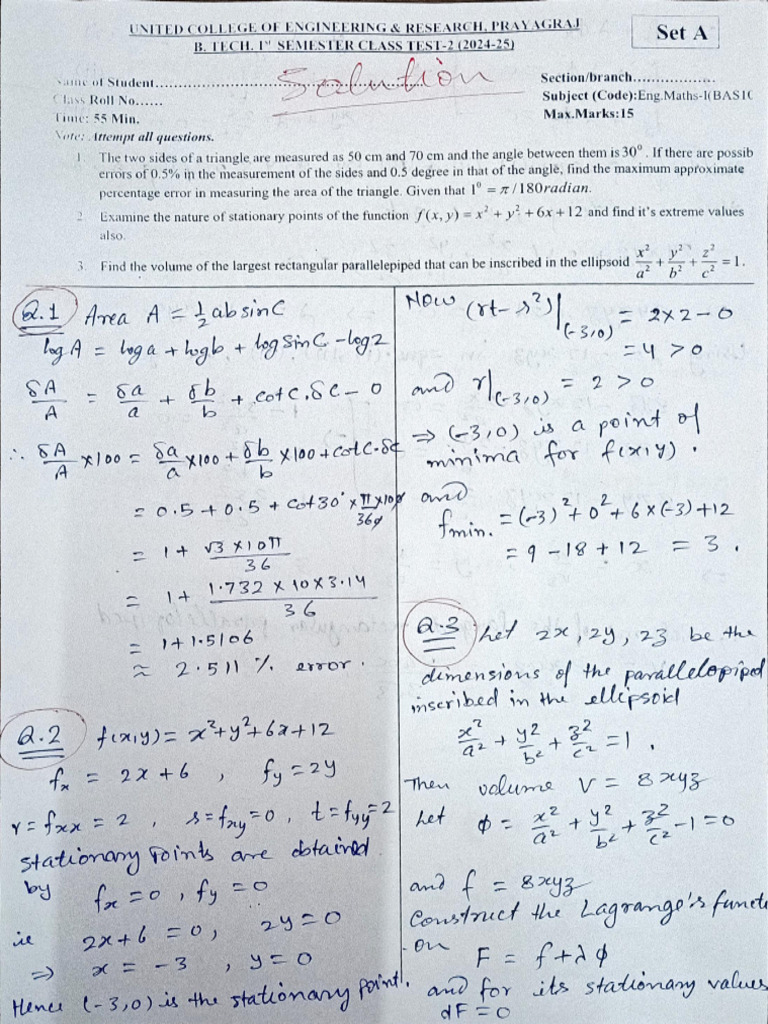 UNITED COLLEGE OF ENGINEERING & RESEARCH, PRAYAGRAJ
B. TECH. Iˢᵗ SEMESTER CLASS TEST-2 (2024-25)
Set A
Name of Student
Solution
Section/branch
Class Roll No......
Subject (Code):Eng.Maths-I(BAS1
Time: 55 Min.
Max.Marks:15
Note: Attempt all questions.
1. The two sides of a triangle are measured as 50 cm and 70 cm and the angle between them is 30⁰. If there are possib
errors of 0.5% in the measurement of the sides and 0.5 degree in that of the angle, find the maximum approximate
percentage error in measuring the area of the triangle. Given that 1⁰ = π/180radian.
2. Examine the nature of stationary points of the function f(x, y) = x² + y² + 6x + 12 and find it's extreme values
also.
3. Find the volume of the largest rectangular parallelepiped that can be inscribed in the ellipsoid x²/a² + y²/b² + z²/c² = 1.
Q.1 Area A = ½ ab sinC
log A = log a + log b + log Sin C - log 2
δA/A = δa/a + δb/b + cot C. δC - 0
∴ δA/A × 100 = δa/a × 100 + δb/b × 100 + cot C. δC
= 0.5 + 0.5 + cot 30° × π/360 × 100
= 1 + √3 × 10π/36
= 1 + 1.732 × 10 × 3.14/36
= 1 + 1.5106
≈ 2.511 % error.
Q.2 f(x,y) = x²+y²+6x+12
fx = 2x+6 , fy = 2y
r = fxx = 2 , s = fxy = 0 , t = fyy = 2
Stationary Points are obtained
by fx = 0 , fy = 0
ie 2x+6 = 0, 2y = 0
⇒ x = -3 , y = 0
Hence (-3,0) is the stationary point.
Now (rt - s²)|(-3,0) = 2×2-0
= 4 > 0
and r|(-3,0) = 2 > 0
⇒ (-3,0) is a point of
minima for f(x,y).
and
fmin. = (-3)² + 0² + 6×(-3) + 12
= 9 - 18 + 12 = 3.
Q.3 Let 2x, 2y, 2z be the
dimensions of the parallelopiped
inscribed in the ellipsoid
x²/a² + y²/b² + z²/c² = 1.
Then volume V = 8xyz
Let φ = x²/a² + y²/b² + z²/c² - 1 = 0
and f = 8xyz
Construct the Lagrange's functi
-on F = f + λφ
and for its stationary values
dF = 0